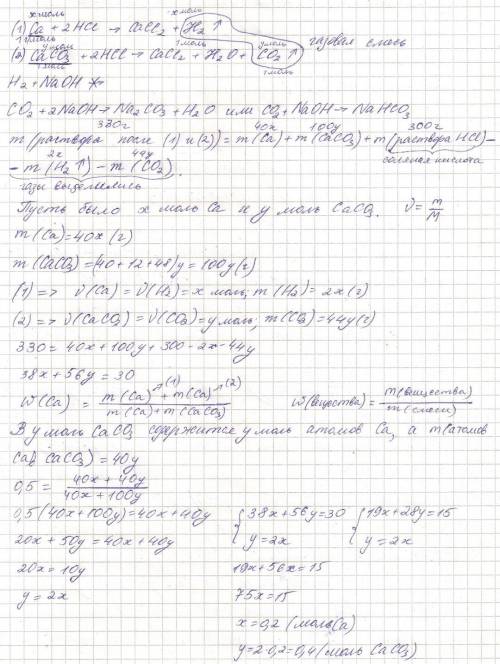 x моль x моль
(1) Ca + 2HCl → CaCl₂ + H₂ ↑
1 моль 1 моль газовая смесь
y моль y моль
(2) CaCO₃ + 2HCl → CaCl₂ + H₂O + CO₂ ↑
1 моль 1 моль
H₂ + NaOH
CO₂ + 2NaOH → Na₂CO₃ + H₂O или CO₂ + NaOH → NaHCO₃
330г 40x 100y 300г
m (раствора после (1) и (2)) = m (Ca) + m (CaCO₃) + m (раствора HCl) –
2x 44y соляная кислота
– m (H₂ ↑) – m (CO₂).
газы выделились
Пусть было x моль Ca и y моль CaCO₃. ν = m/M
m (Ca) = 40x (г)
m (CaCO₃) = (40 + 12 + 48) y = 100y (г)
(1) => ν (Ca) = ν (H₂) = x моль; m (H₂) = 2x (г)
(2) => ν (CaCO₃) = ν (CO₂) = y моль; m (CO₂) = 44y (г)
330 = 40x + 100y + 300 – 2x – 44y
38x + 56y = 30
W (Ca) = (m (Ca)⁽¹⁾ + m (Ca)⁽²⁾) / (m (Ca) + m (CaCO₃)) W (вещества) = m (вещества) / m (смеси)
В y моль CaCO₃ содержится y моль атомов Ca, а m (атомов
Ca в CaCO₃) = 40y
0,5 = (40x + 40y) / (40x + 100y)
0,5 (40x + 100y) = 40x + 40y { 38x + 56y = 30 { 19x + 28y = 15
20x + 50y = 40x + 40y y = 2x y = 2x
20x = 10y 19x + 56x = 15
y = 2x 75x = 15
x = 0,2 (моль Ca)
y = 2·0,2 = 0,4 (моль CaCO₃)